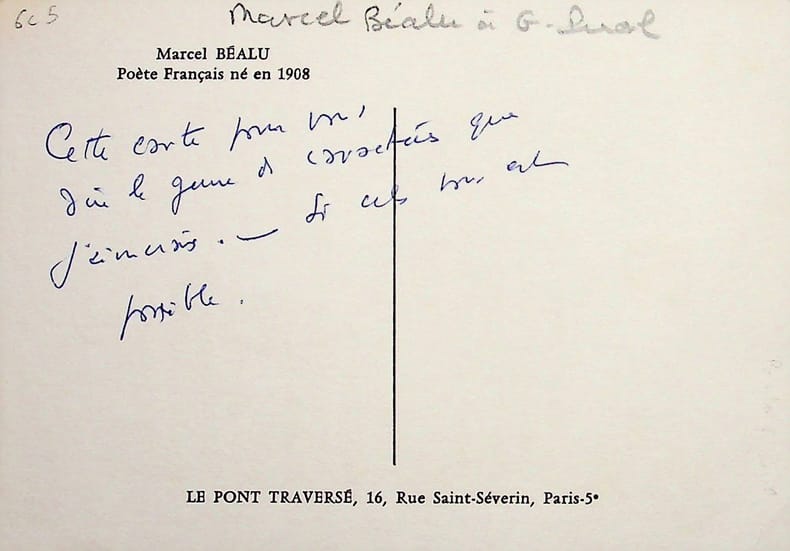 6c5
Marcel Béalu à G.
Marcel BÉALU
Poète Français né en 1908
Cette carte pour vous
dire le genre de caractères que
j'aimerais. — Si cela vous est
possible.
LE PONT TRAVERSÉ, 16, Rue Saint-Séverin, Paris-5ᵉ